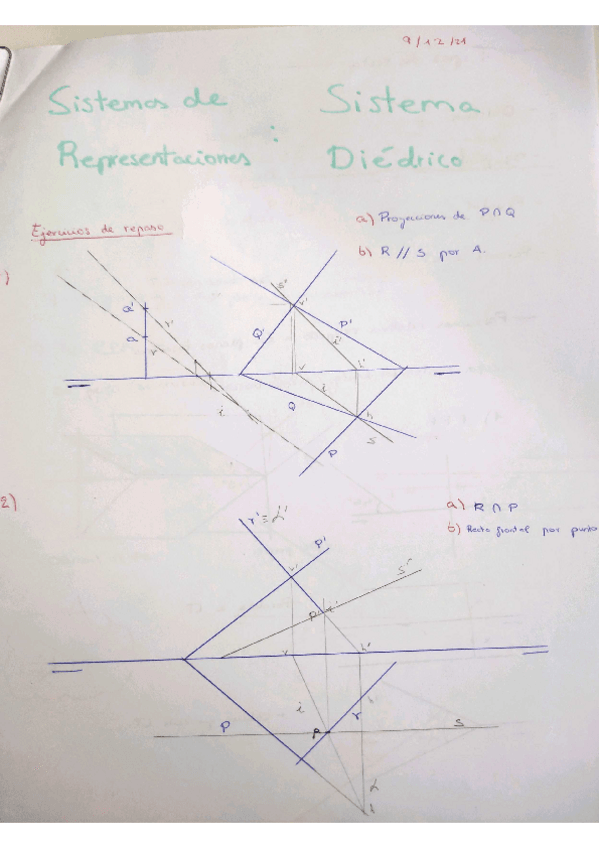 9/12/21
Sistemas de
Representaciones
:
Sistema
Diédrico
Ejercicios de repaso
a) Proyecciones de P∩Q
b) R // S por A.
)
s'
v'
a'
r'
Q'
P'
i'
a
r
v
h'
i
i
Q
h
s
P
2)
a) R ∩ P
b) Recta frontal por punto
r' ≡ i'
P'
v'
s'
P
v
h'
i
r
P
s
P
h